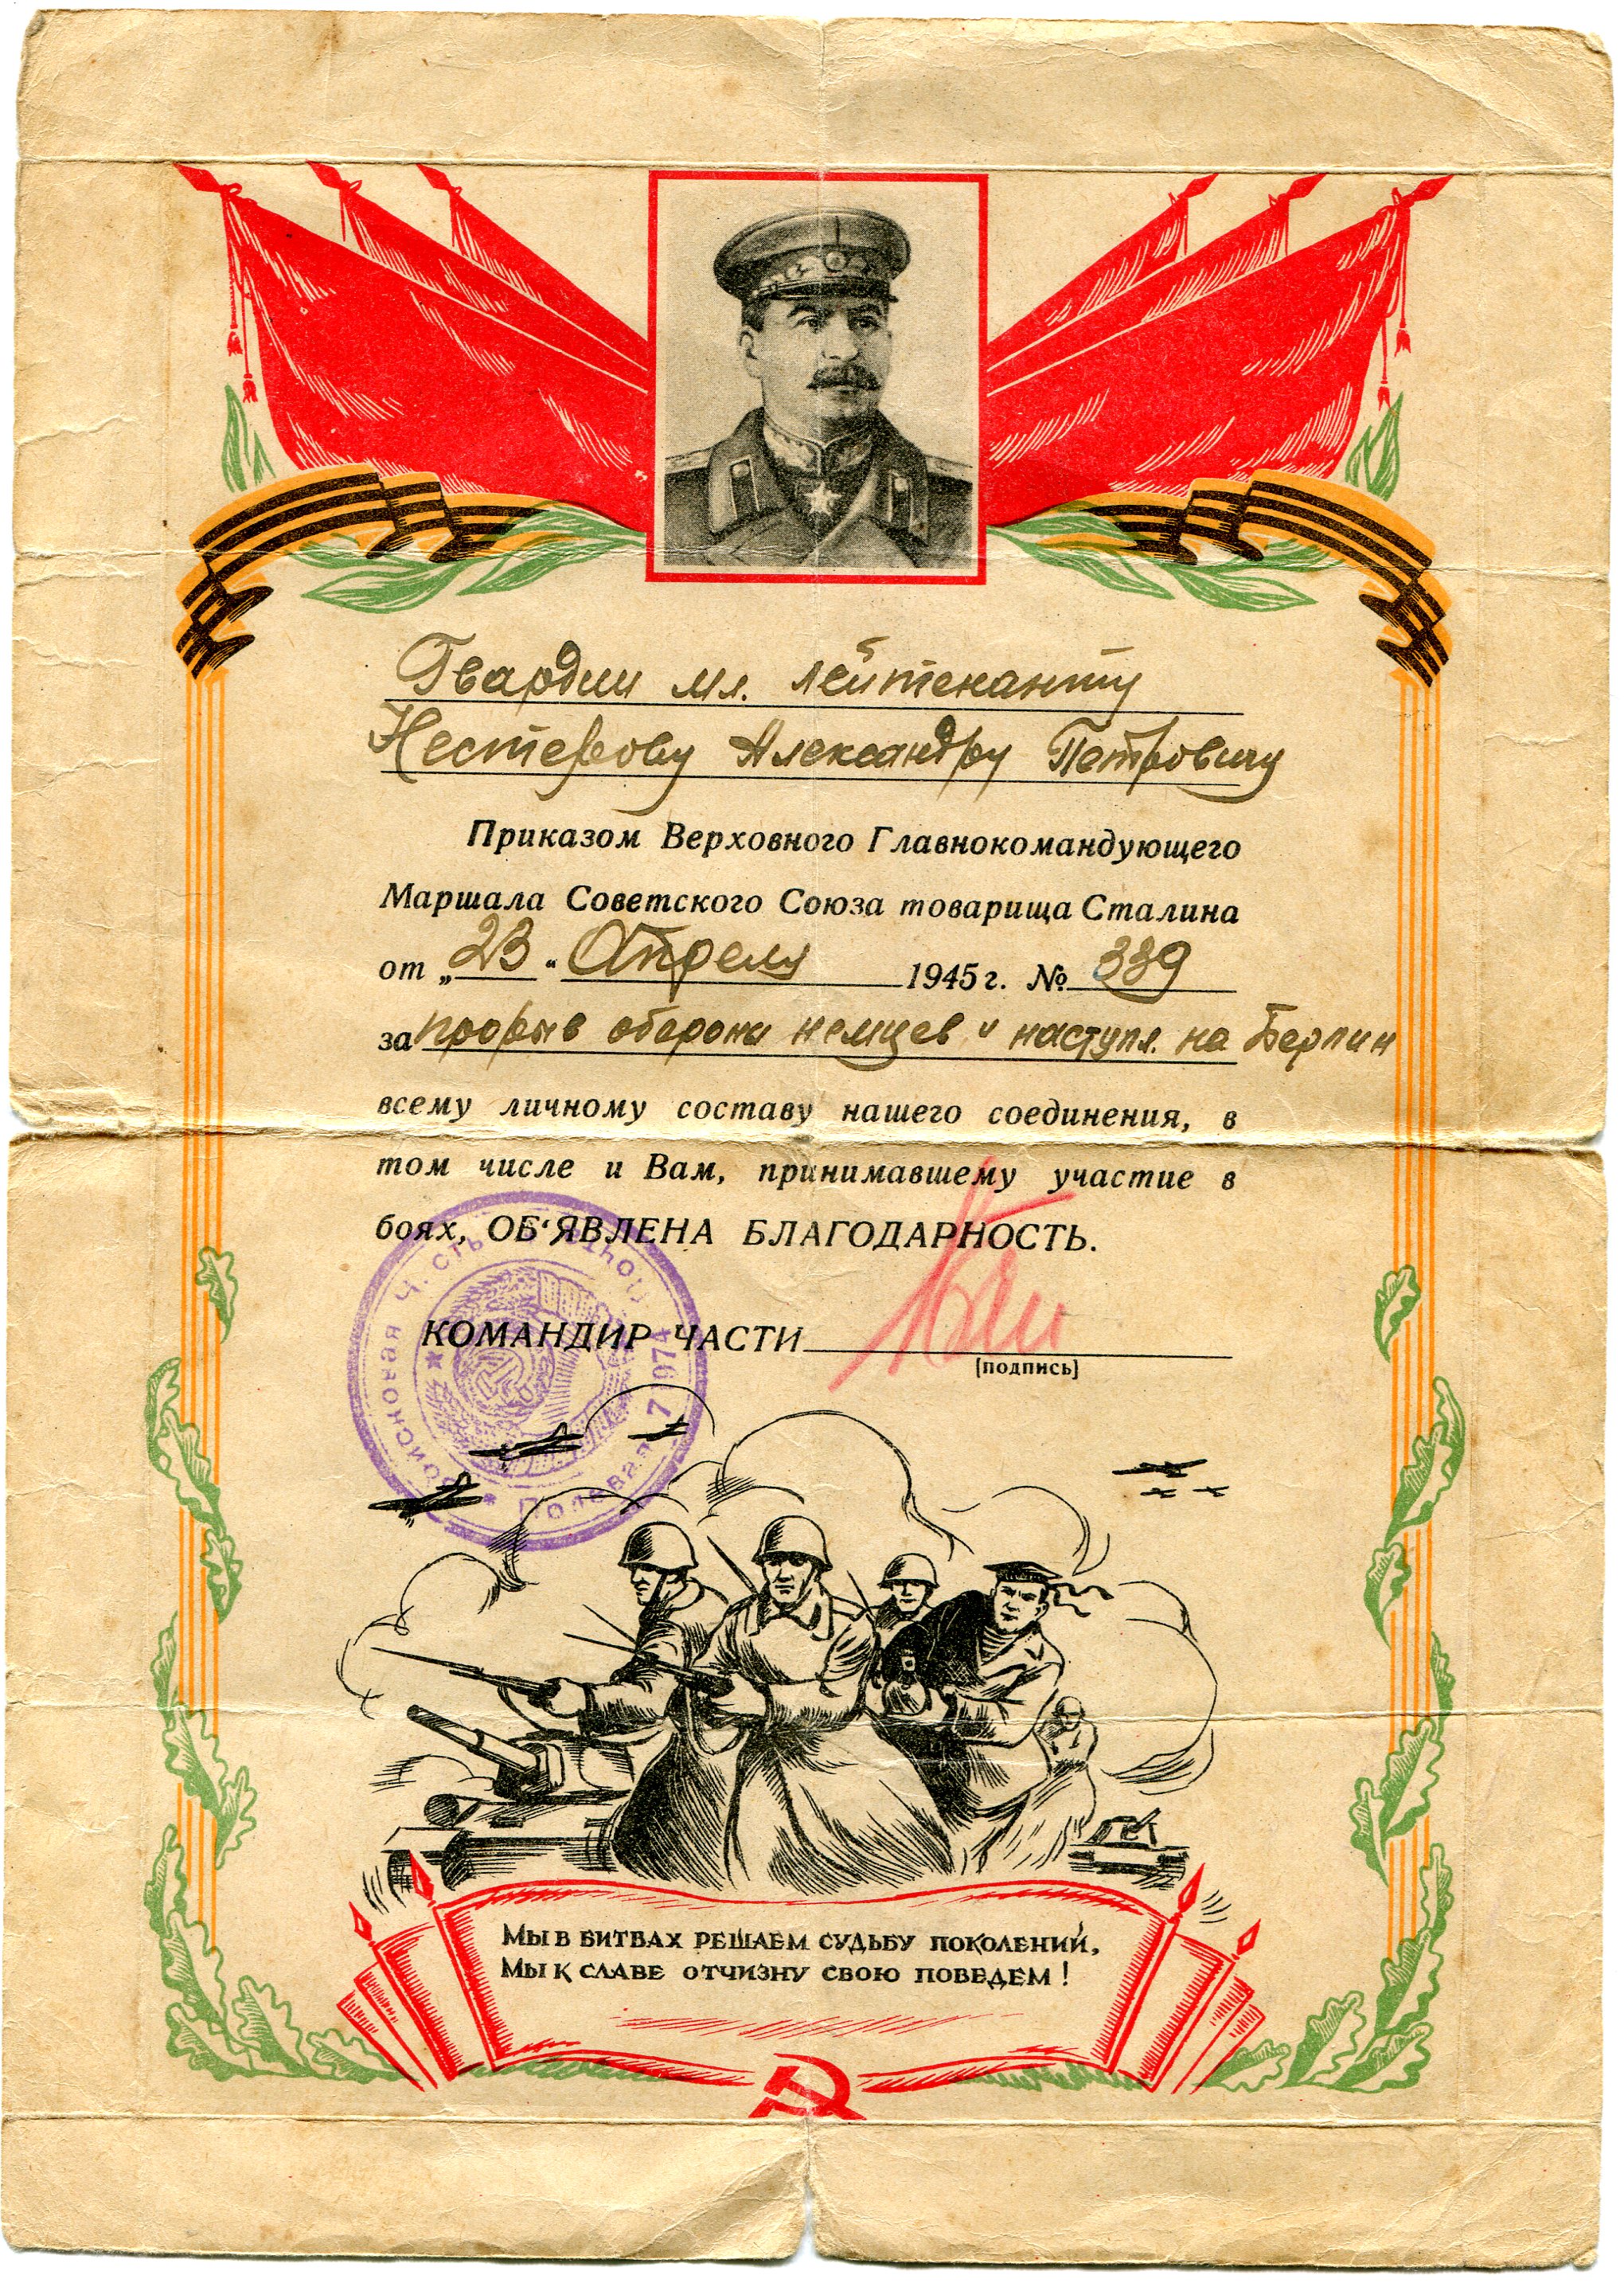 Гвардии мл. лейтенанту
Нестерову Александру Петровичу
Приказом Верховного Главнокомандующего
Маршала Советского Союза товарища Сталина
от „23“ Апреля 1945 г. № 339
за прорыв обороны немцев и наступл. на Берлин
всему личному составу нашего соединения, в
том числе и Вам, принимавшему участие в
боях, ОБ‘ЯВЛЕНА БЛАГОДАРНОСТЬ.
КОМАНДИР ЧАСТИ
[подпись]
Войсковая Часть
Полевая Почта 07074
МЫ В БИТВАХ РЕШАЕМ СУДЬБУ ПОКОЛЕНИЙ,
МЫ К СЛАВЕ ОТЧИЗНУ СВОЮ ПОВЕДЕМ !